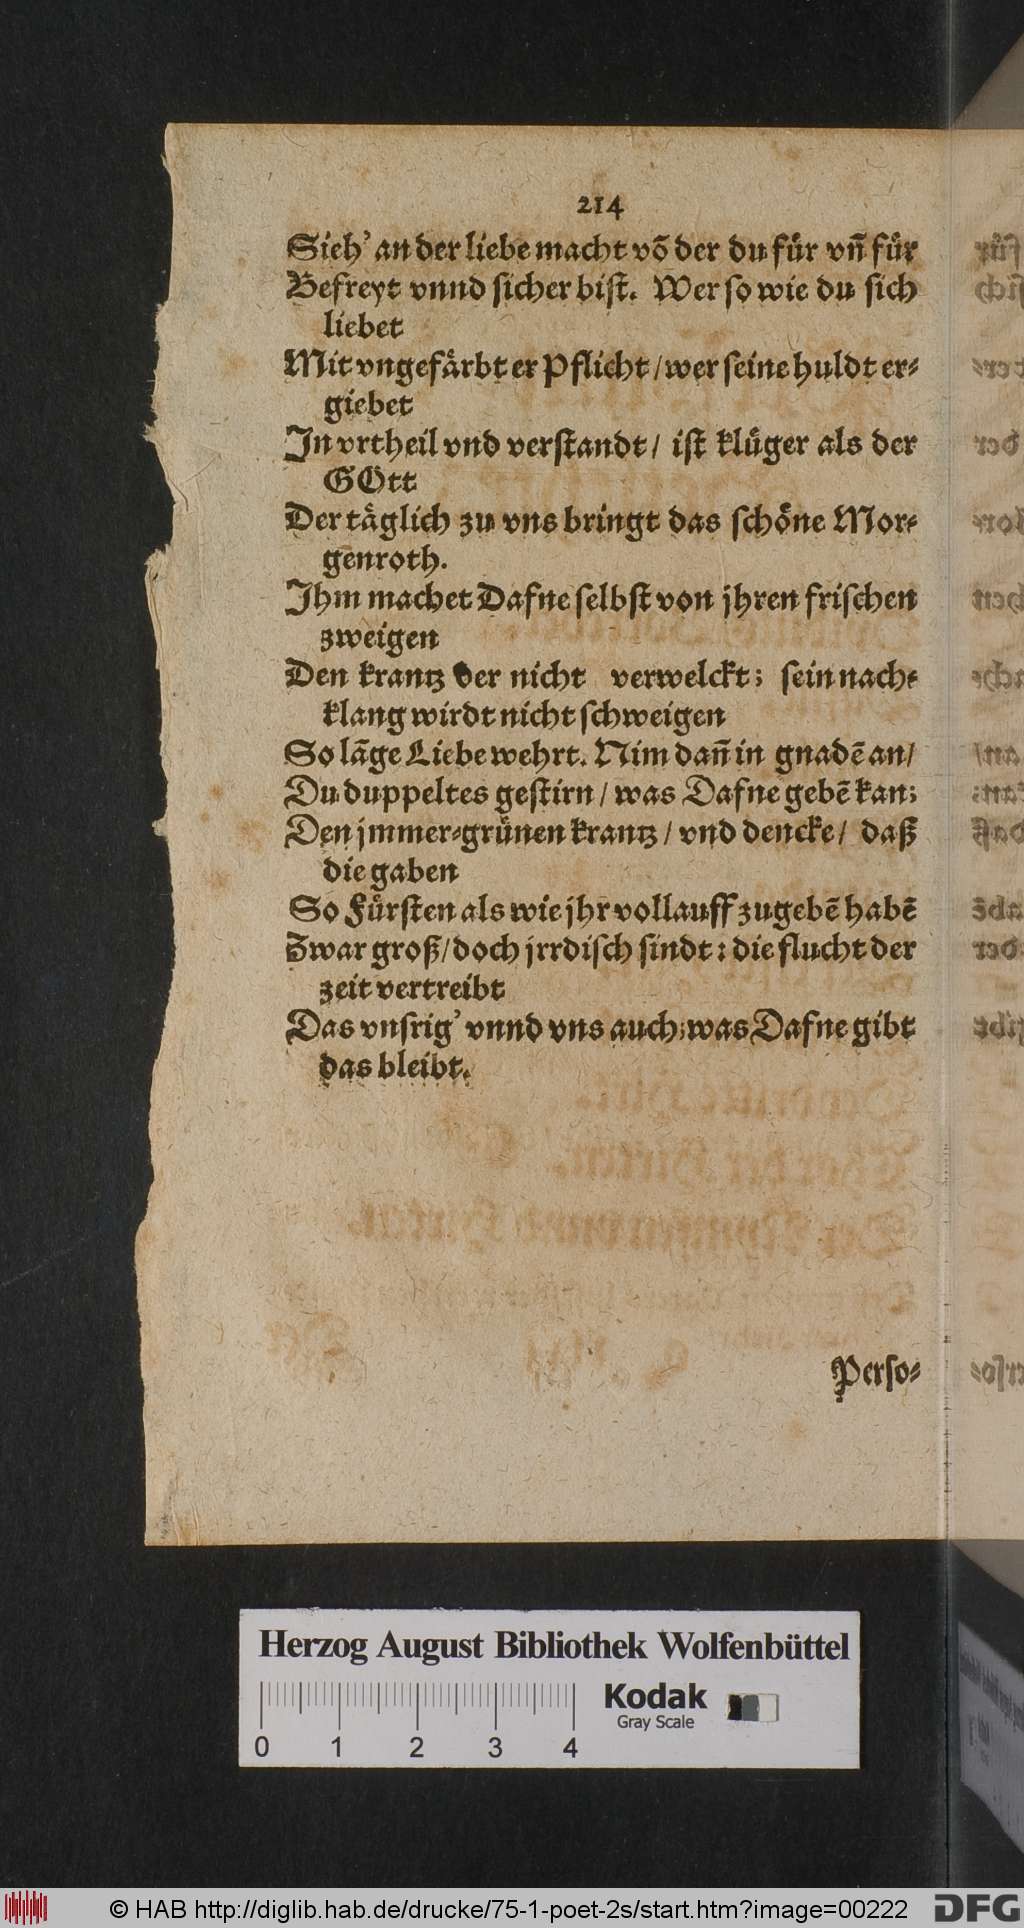 214
Sieh’ an der liebe macht võ der du fuͤr vñ fuͤr
Befreyt vnnd sicher bist. Wer so wie du sich
liebet
Mit vngefaͤrbter Pflicht / wer seine huldt er⸗
giebet
In vrtheil vnd verstandt / ist kluͤger als der
GOtt
Der taͤglich zu vns bringt das schoͤne Mor⸗
genroth.
Ihm machet Dafne selbst von jhren frischen
zweigen
Den krantz der nicht verwelckt; sein nach⸗
klang wirdt nicht schweigen
So lãge Liebe wehrt. Nim dañ in gnadẽ an /
Du duppeltes gestirn / was Dafne gebẽ kan;
Den jmmer⸗gruͤnen krantz / vnd dencke / daß
die gaben
So Fuͤrsten als wie jhr vollauff zugebẽ habẽ
Zwar groß / doch jrrdisch sindt: die flucht der
zeit vertreibt
Das vnsrig’ vnnd vns auch; was Dafne gibt
das bleibt.
Perso⸗
Herzog August Bibliothek Wolfenbüttel
Kodak
Gray Scale
0 1 2 3 4
© HAB http://diglib.hab.de/drucke/75-1-poet-2s/start.htm?image=00222
DFG